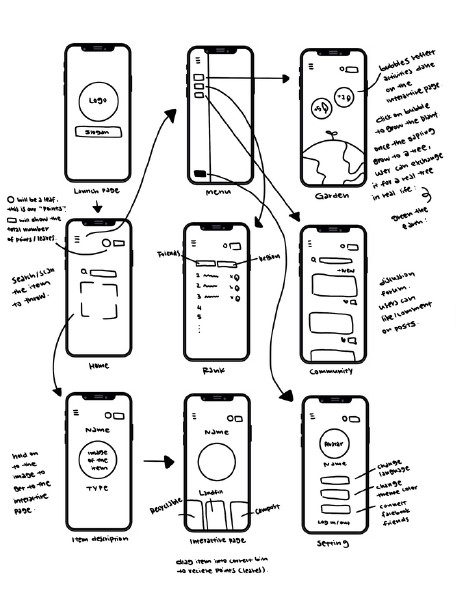 Logo
Slogan
Launch page
Menu
bubbles reflect
activities done
on the
interactive page
click on bubble
to grow the plant
once the sapling
grow to a tree,
user can exchange
it for a real tree
in real life.
green the
earth.
Garden
will be a leaf,
this is our "points".
will show the
total number
of points/leaves.
Search/scan
the item
to throw.
Home
Friends
Region
1
2
3
4
5
Rank
+NEW
discussion
forum.
users can
like/comment
on posts.
Community
Name
image
of the
item
TYPE
hold on
to the
image to
get to the
interactive
page.
Item description
Name
Landfill
Recyclable
Compost
Interactive page
drag item into correct bin
to receive points (leaves).
Avatar
Name
change
language
change
theme color
connect
facebook
friends
Log in/out
Setting